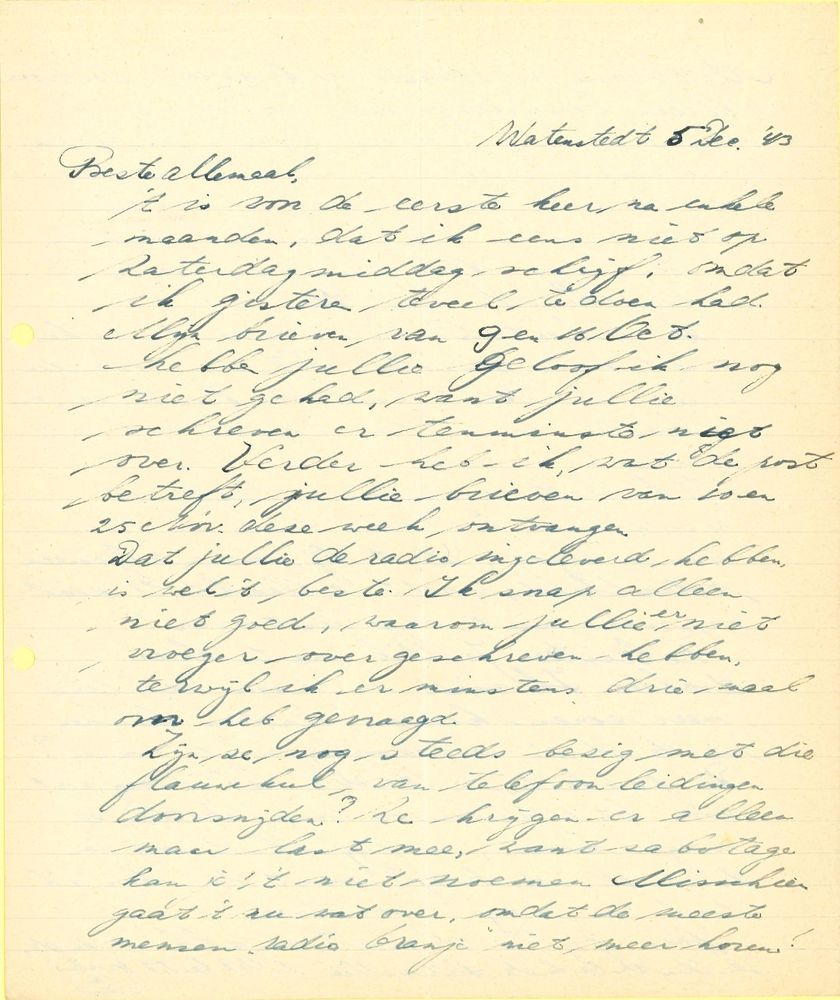 Watenstedt 5 Dec. '43
Beste allemaal,
't is voor de eerste keer, na enkele
maanden, dat ik eens niet op
Zaterdagmiddag schijf, omdat
ik gisteren teveel te doen had.
Mijn brieven van 9 en 16 Oct.
hebben jullie geloof ik nog
niet gehad, want jullie
schreven er tenminste niet
over. Verder heb ik, wat de post
betreft, jullie brieven van 20 en
25 Nov. deze week ontvangen.
Dat jullie de radio ingeleverd hebben,
is wel 't beste. Ik snap alleen
niet goed, waarom jullie er niet
vroeger over geschreven hebben,
terwijl ik er minstens drie maal
om heb gevraagd.
Zijn ze nog steeds bezig met die
flauwekul, van telefoonleidingen
doorsnijden? Ze krijgen er alleen
maar last mee, want sabotage
kan je 't niet noemen. Misschien
gaat 't nu wat over, omdat de meeste
mensen "radio Oranje" niet meer horen!